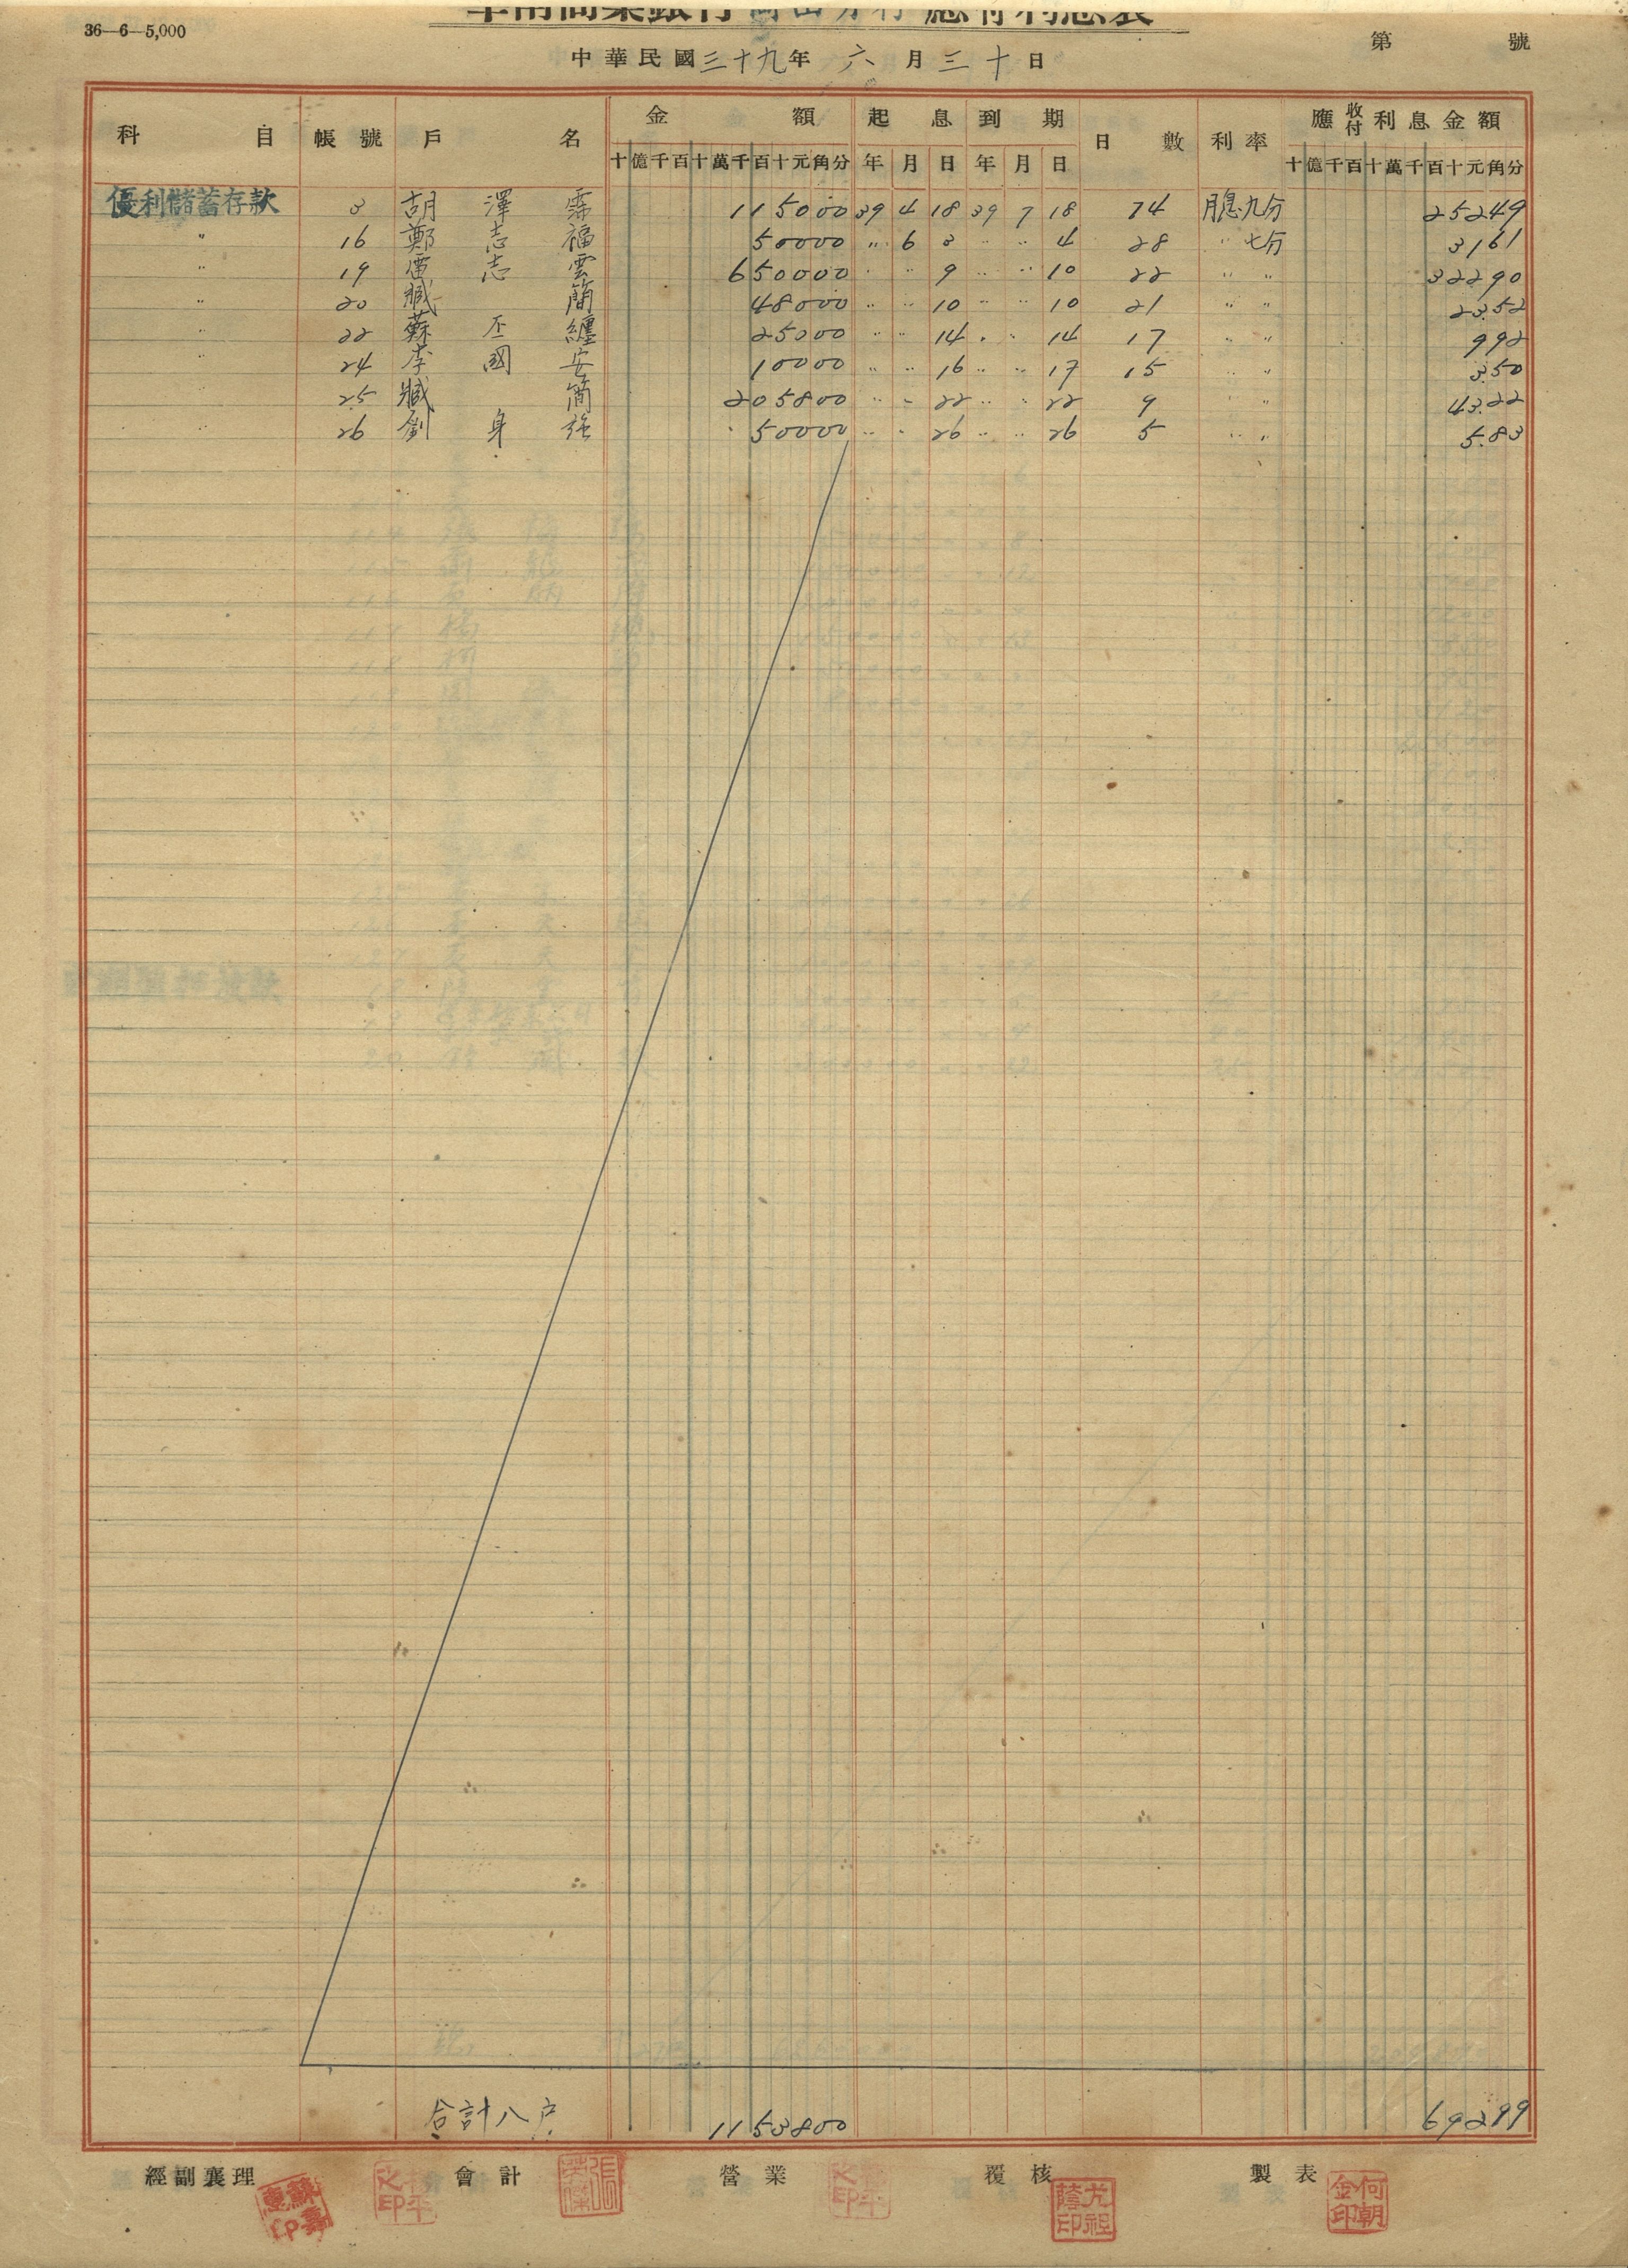 華南商業銀行 應付利息表
36—6—5,000
第 號
中華民國三十九年 六月三十日
科目 帳號 戶名 金額 起息 到期 日數 利率 應收付利息金額
十億千百十萬千百十元角分 年 月 日 年 月 日 十億千百十萬千百十元角分
優利儲蓄存款 3 胡澤霖 115000 39 4 18 39 7 18 74 月息九分 25249
〃 16 鄭志福 50000 〃 6 3 〃 〃 4 28 〃 七分 3161
〃 19 雷志雲 650000 〃 〃 9 〃 〃 10 22 〃 〃 32290
〃 20 臧簡 48000 〃 〃 10 〃 〃 10 21 〃 〃 2352
〃 22 蘇丕纏 25000 〃 〃 14 〃 〃 14 17 〃 〃 992
〃 24 李國安 10000 〃 〃 16 〃 〃 17 15 〃 〃 350
〃 25 臧簡 205800 〃 〃 22 〃 〃 22 9 〃 〃 4322
〃 26 劉身強 50000 〃 〃 26 〃 〃 26 5 〃 〃 583
合計八戶 1153800 69299
經副襄理 會計 營業 覆核 製表
尤祖蔭印 何朝金印